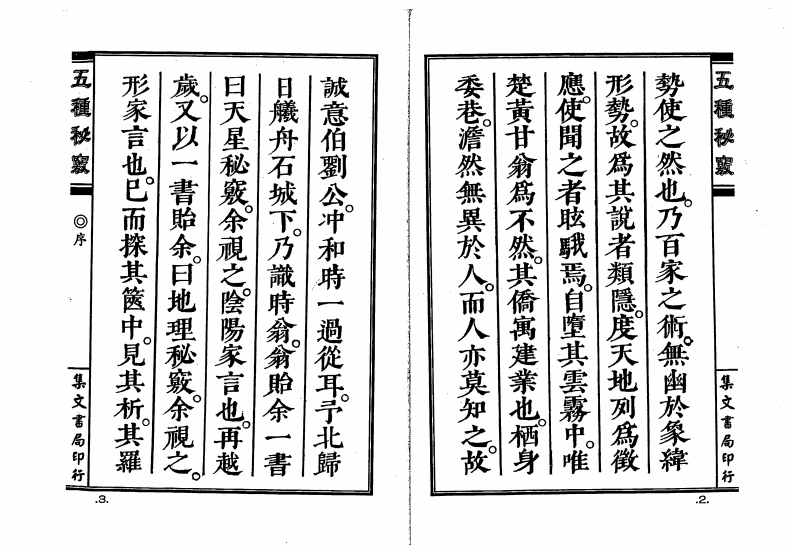 五種秘竅
集文書局印行
勢使之然也。乃百家之術。無幽於象緯
形勢。故為其說者類隱。度天地列為徵
應。使聞之者眩駴焉。自墮其雲霧中。唯
楚黃甘翁為不然。其僑寓建業也。栖身
委巷。澹然無異於人。而人亦莫知之。故
.2.
誠意伯劉公。冲和時一過從耳。予北歸
日艤舟石城下。乃識時翁。翁貽余一書
曰天星秘竅。余視之。陰陽家言也。再越
歲。又以一書貽余。曰地理秘竅。余視之。
形家言也。已而探其篋中。見其析。其羅
五種秘竅
◎序
集文書局印行
.3.